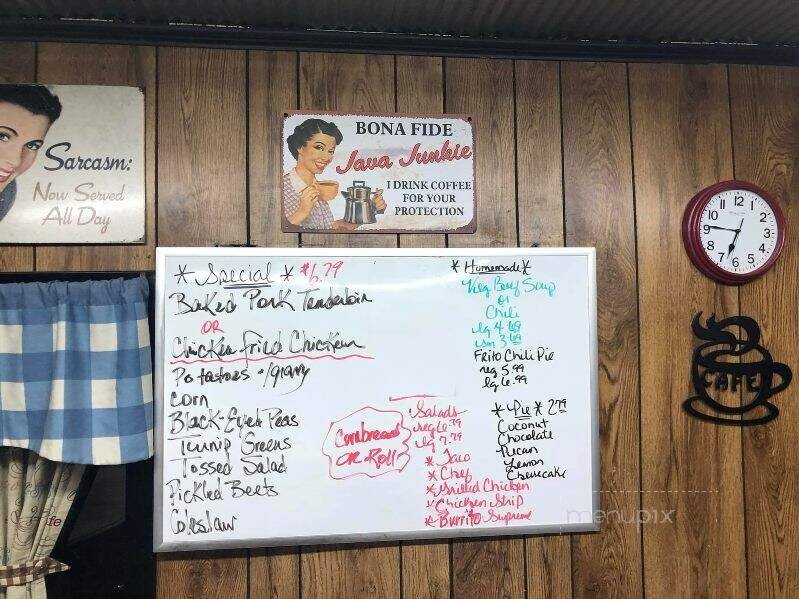 Sarcasm:
Now Served
All Day
BONA FIDE
Java Junkie
I DRINK COFFEE
FOR YOUR
PROTECTION
* Special * $6.79
Baked Pork Tenderloin
OR
Chicken Fried Chicken
Potatoes w/gravy
Corn
Black-Eyed Peas
Turnip Greens
Tossed Salad
Pickled Beets
Coleslaw
Cornbread
OR Roll
* Homemade *
Veg Beef Soup
or
Chili
lg 4.69
sm 3.69
Frito Chili Pie
reg 5.99
lg 6.99
Salads
reg 6.79
lg 7.79
* Taco
* Chef
* Grilled Chicken
* Chicken Strip
* Burrito Supreme
* Pie * 2.79
Coconut
Chocolate
Pecan
Lemon
Cheesecake
12
1
2
3
4
5
6
7
8
9
10
11
CAFE
menupix